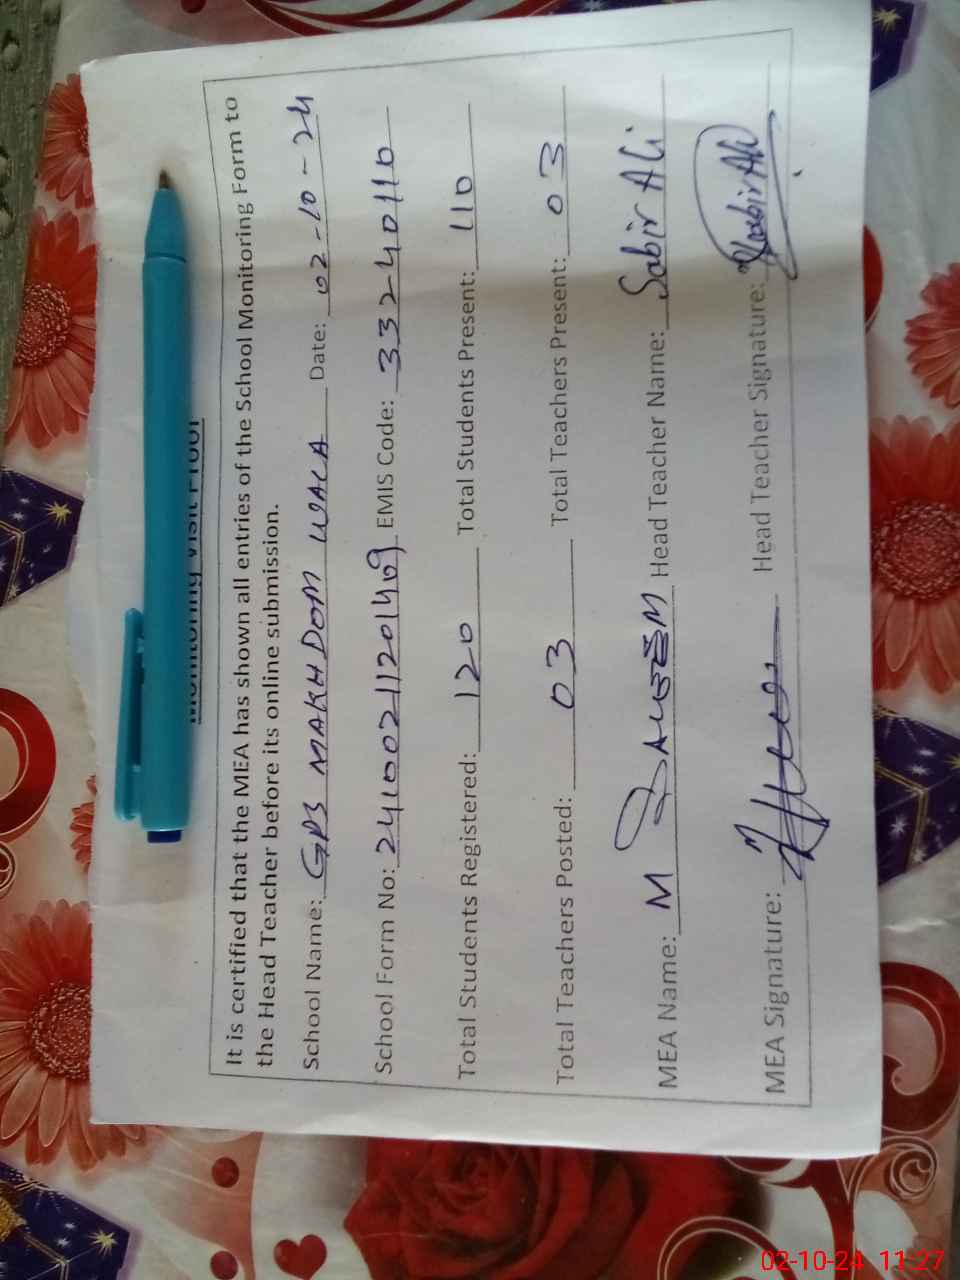 Monitoring Visit Proof
It is certified that the MEA has shown all entries of the School Monitoring Form to
the Head Teacher before its online submission.
School Name: GPS MAKHDOM WALA Date: 02-10-24
School Form No: 24100211201469 EMIS Code: 33240110
Total Students Registered: 120 Total Students Present: 110
Total Teachers Posted: 03 Total Teachers Present: 03
MEA Name: M Head Teacher Name: Sabir Ali
MEA Signature: Head Teacher Signature: Sabir Ali
02-10-24 11:27